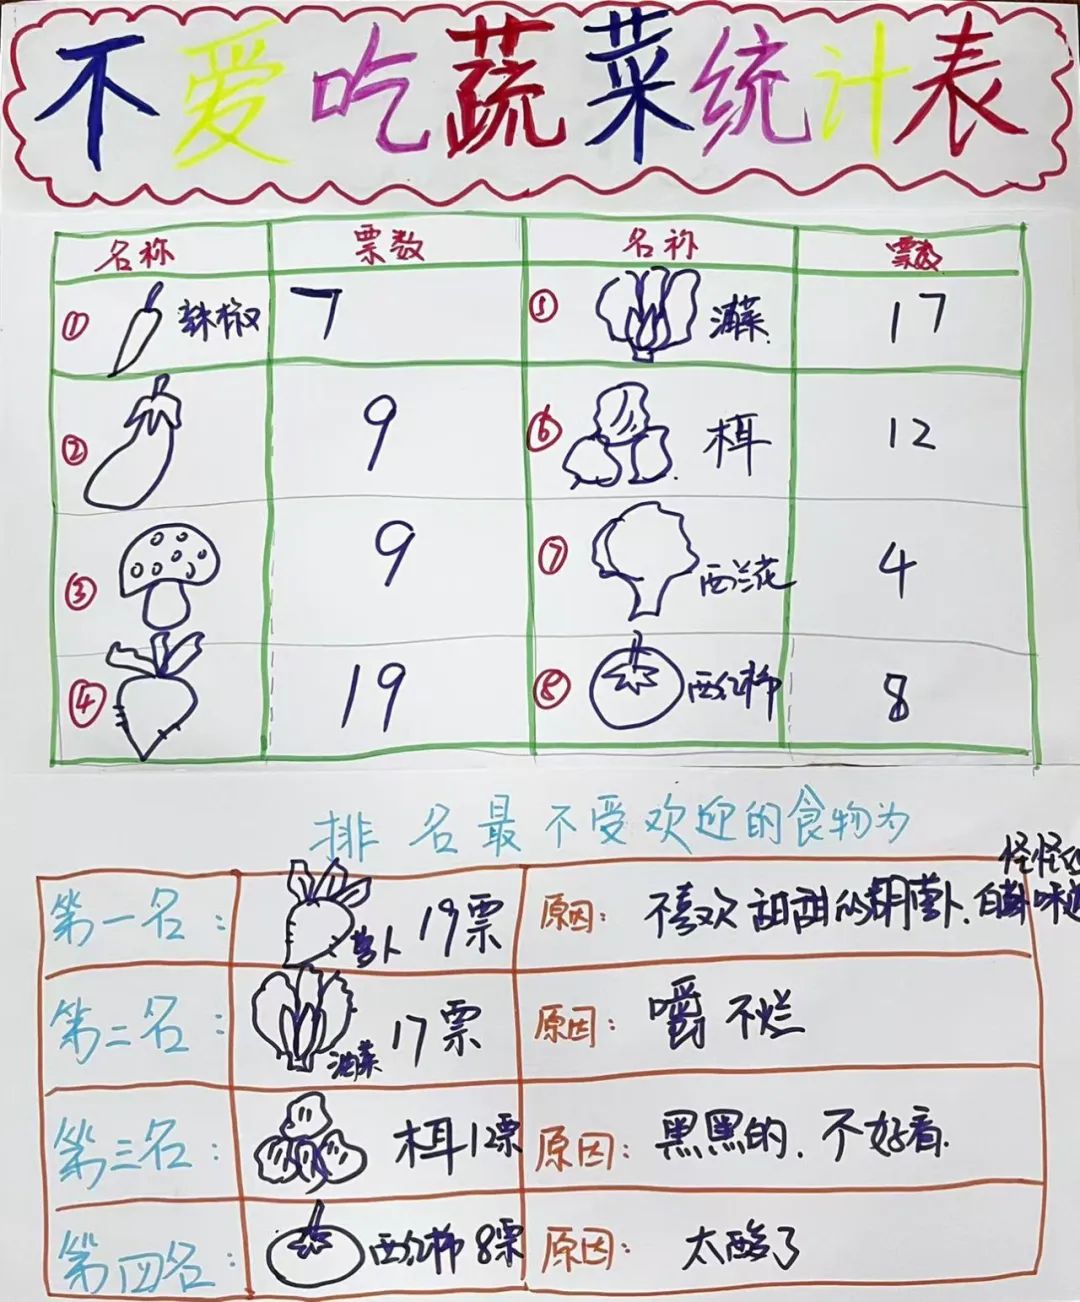 不爱吃蔬菜统计表
名称 票数 名称 票数
① 辣椒 7 ⑤ 油菜 17
② 9 ⑥ 木耳 12
③ 9 ⑦ 西兰花 4
④ 19 ⑧ 西红柿 8
排名最不受欢迎的食物为
第一名: 萝卜 19票 原因: 不喜欢甜甜的胡萝卜.白萝卜味道怪怪的
第二名: 油菜 17票 原因: 嚼不烂
第三名: 木耳12票 原因: 黑黑的.不好看.
第四名: 西红柿 8票 原因: 太酸了